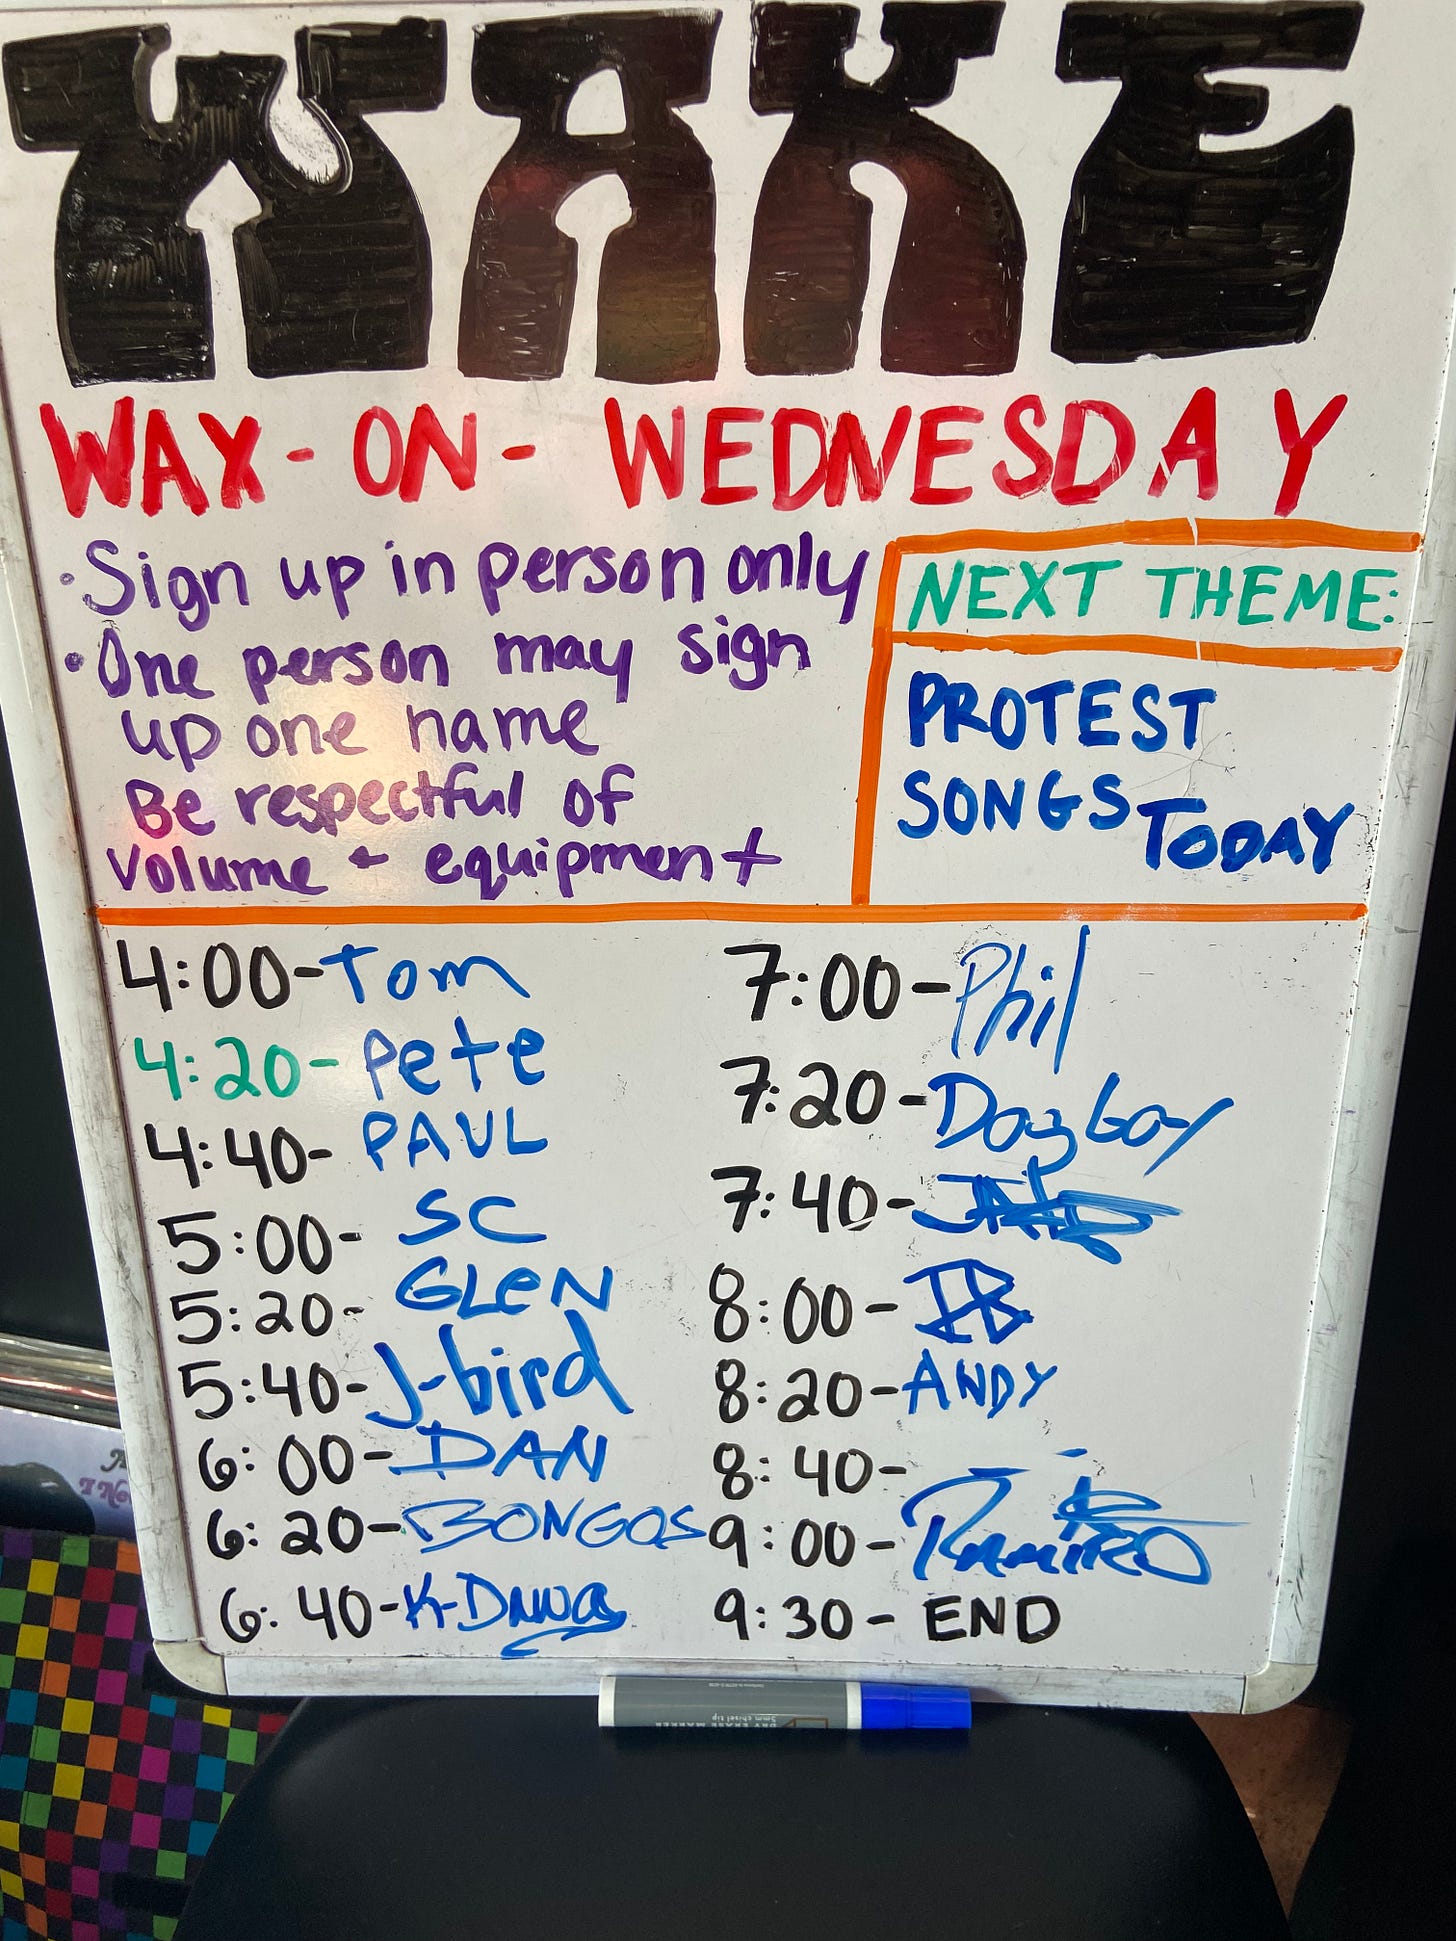 WAKE
WAX-ON-WEDNESDAY
• Sign up in person only
• One person may sign
up one name
Be respectful of
volume + equipment
NEXT THEME:
PROTEST
SONGS TODAY
4:00-Tom
4:20-Pete
4:40-PAUL
5:00-SC
5:20-GLeN
5:40-J-bird
6:00-DAN
6:20-BONGOS
6:40-K-DAWG
7:00-Phil
7:20-Dogboy
7:40-
8:00-
8:20-ANDY
8:40-
9:00-RAMIRO
9:30-END
DRY ERASE MARKER
5mm chisel tip